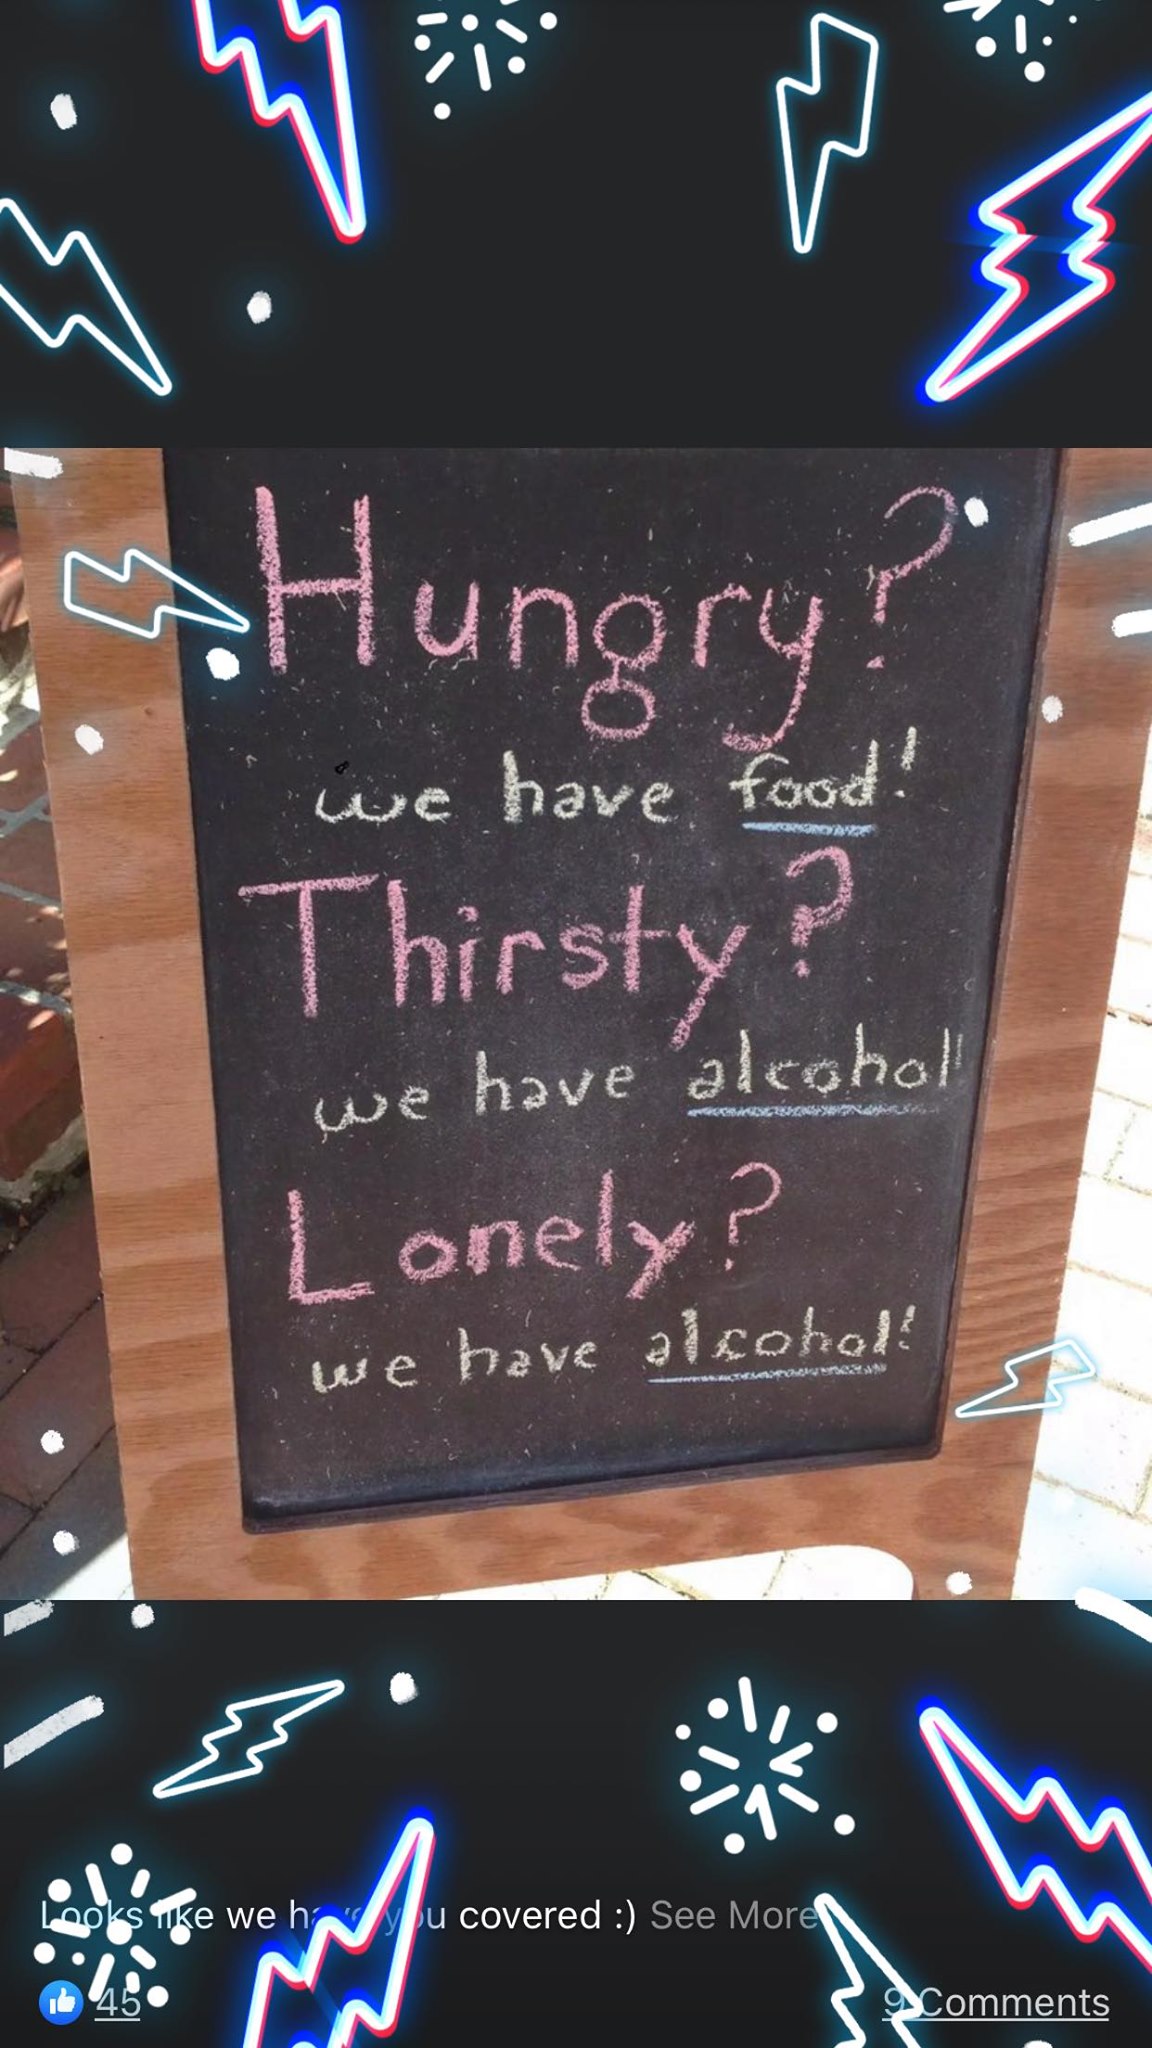 Hungry?
we have food!
Thirsty?
we have alcohol!
Lonely?
we have alcohol!
Looks like we have you covered :) See More
45
9 Comments